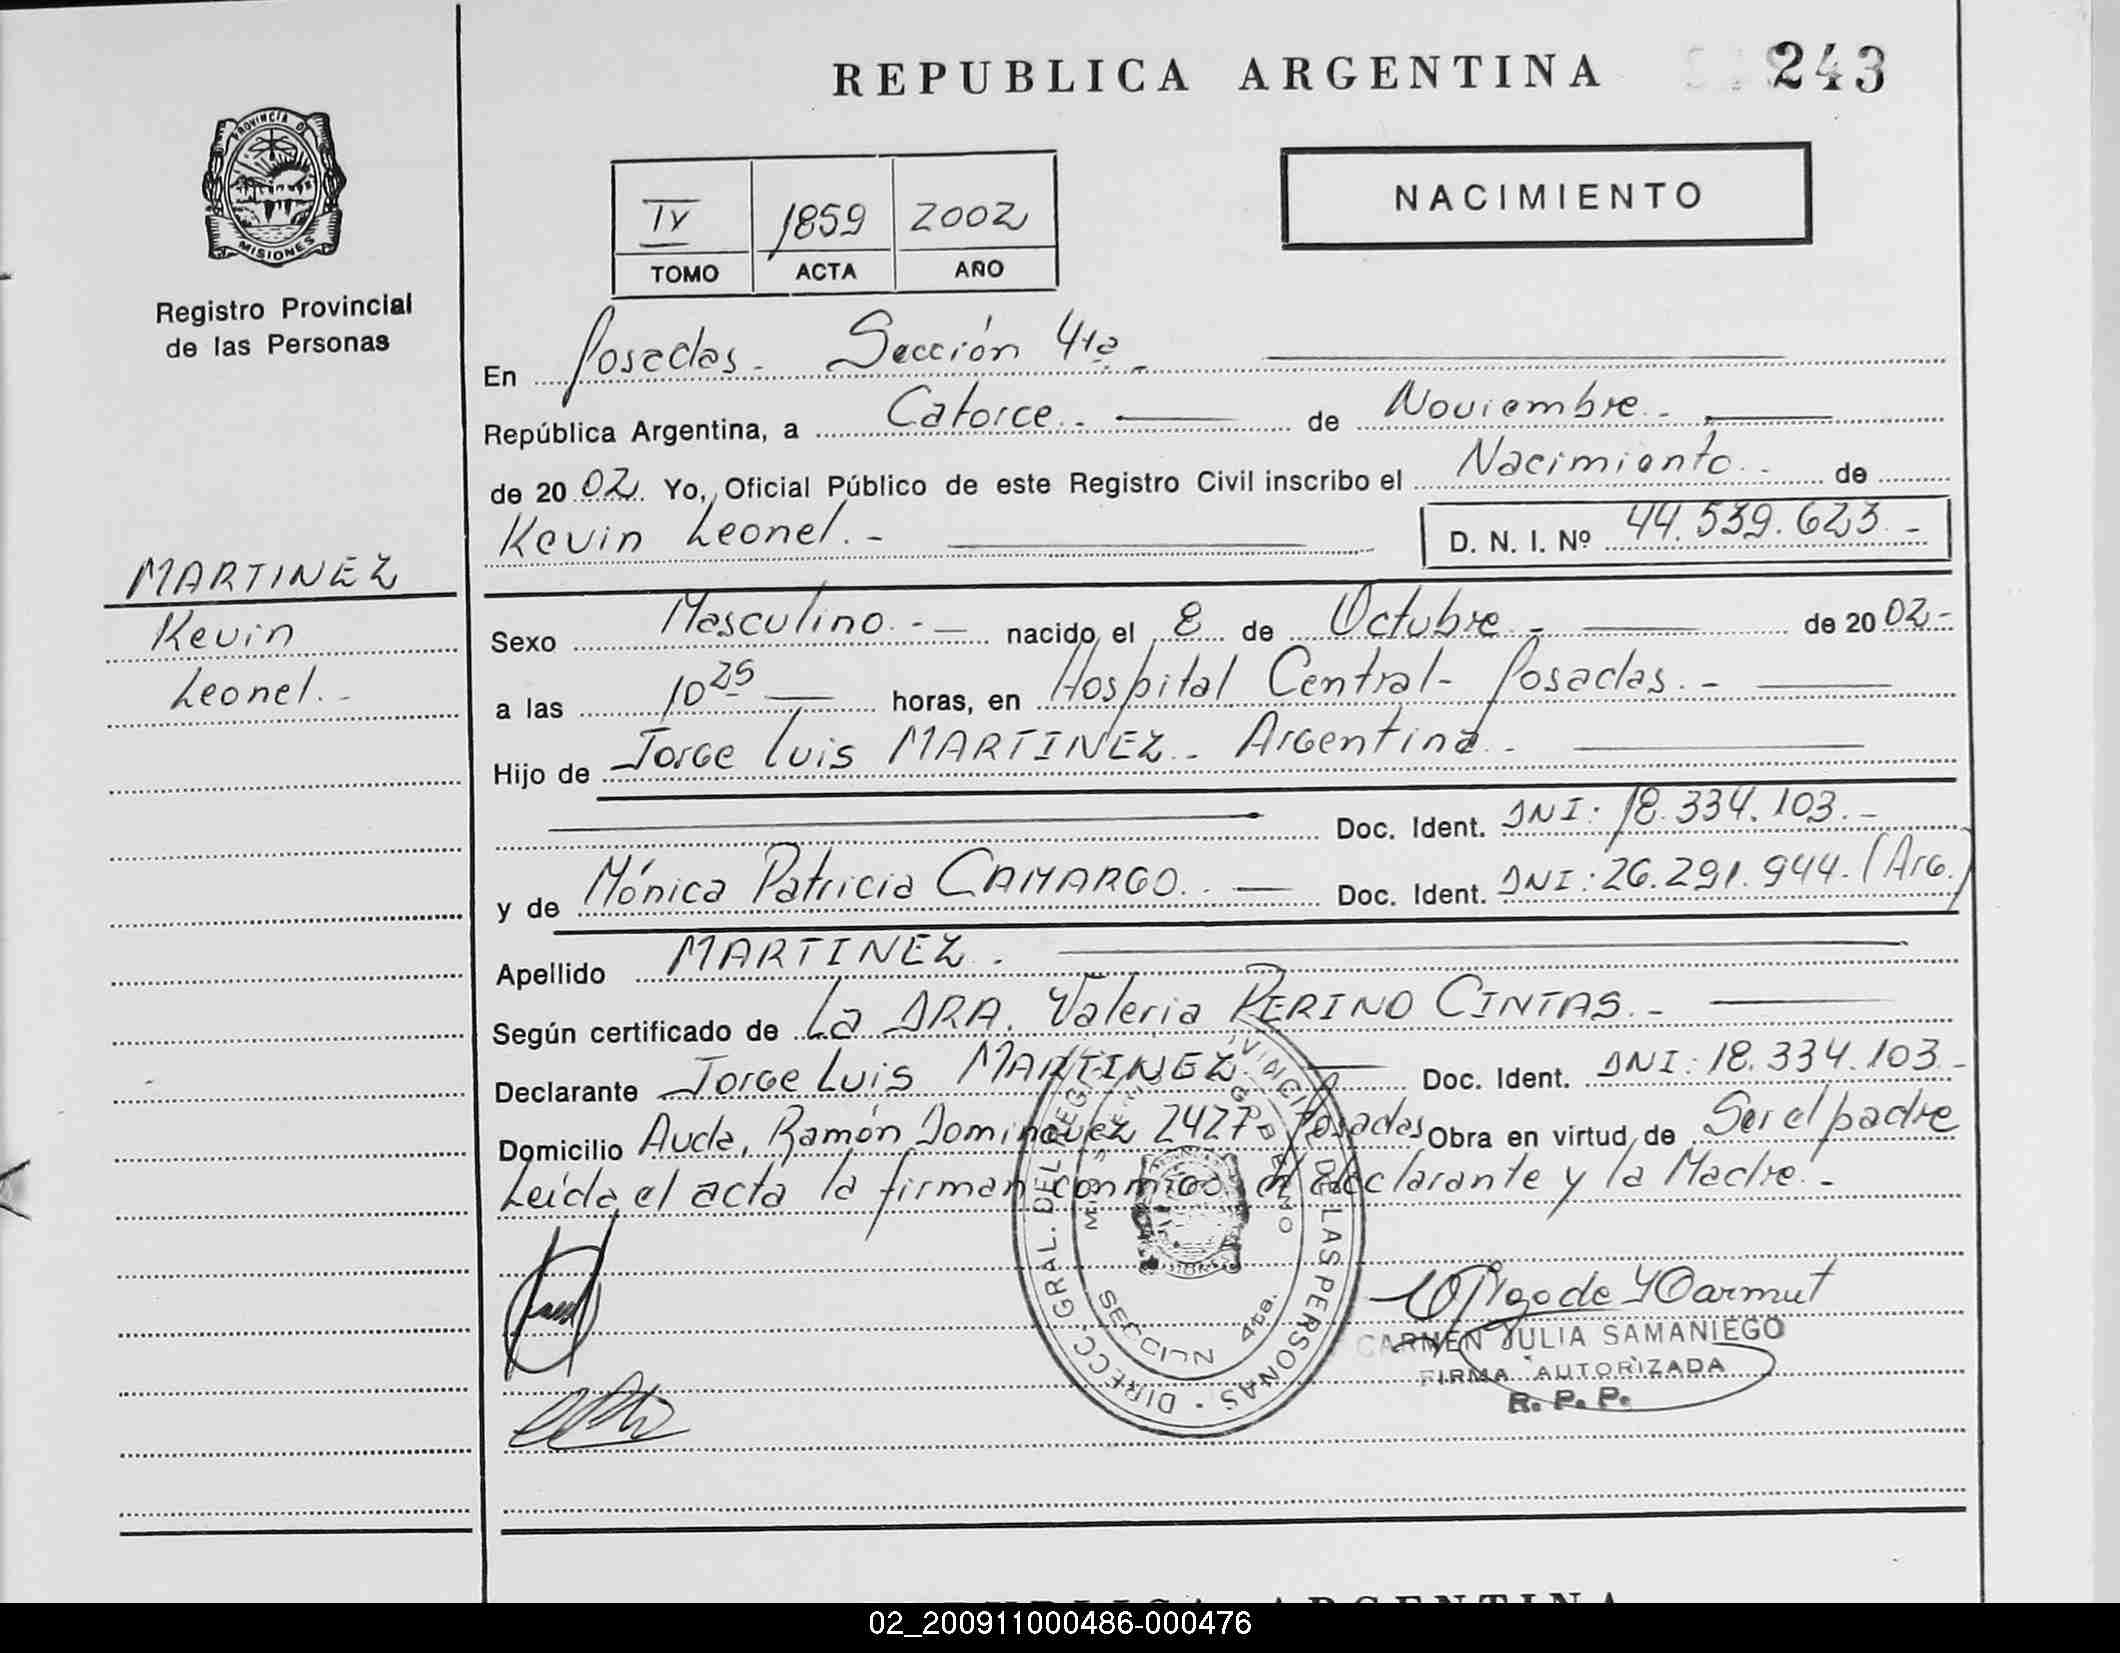 REPUBLICA ARGENTINA
243
PROVINCIA DE
MISIONES
Registro Provincial
de las Personas
NACIMIENTO
IV 1859 2002
TOMO ACTA AÑO
En Posadas - Sección 4ta -
República Argentina, a Catorce.- de Noviembre.-
de 2002. Yo, Oficial Público de este Registro Civil inscribo el Nacimiento.- de
Kevin Leonel.- D. N. I. Nº 44.539.623.-
MARTINEZ
Kevin
Leonel.-
Sexo Masculino.- nacido el 8 de Octubre.- de 2002-
a las 10 25 horas, en Hospital Central - Posadas.-
Hijo de Jorge Luis MARTINEZ.- Argentina.-
Doc. Ident. DNI: 18.334.103.-
y de Mónica Patricia CAMARGO.- Doc. Ident. DNI: 26.291.944.(Arg.)
Apellido MARTINEZ.
Según certificado de La DRA. Valeria PERINO CINTAS.-
Declarante Jorge Luis MARTINEZ.- Doc. Ident. DNI: 18.334.103-
Domicilio Avda, Ramón Dominguez 2427- Posadas Obra en virtud de Ser el padre
Leída el acta la firman conmigo el declarante y la Madre.-
DIRECC. GRAL. DEL REG. PROVINCIAL DE LAS PERSONAS
SECCION 4ta.
CARMEN JULIA SAMANIEGO
FIRMA AUTORIZADA
R. P. P.
REPUBLICA ARGENTINA
02_200911000486-000476